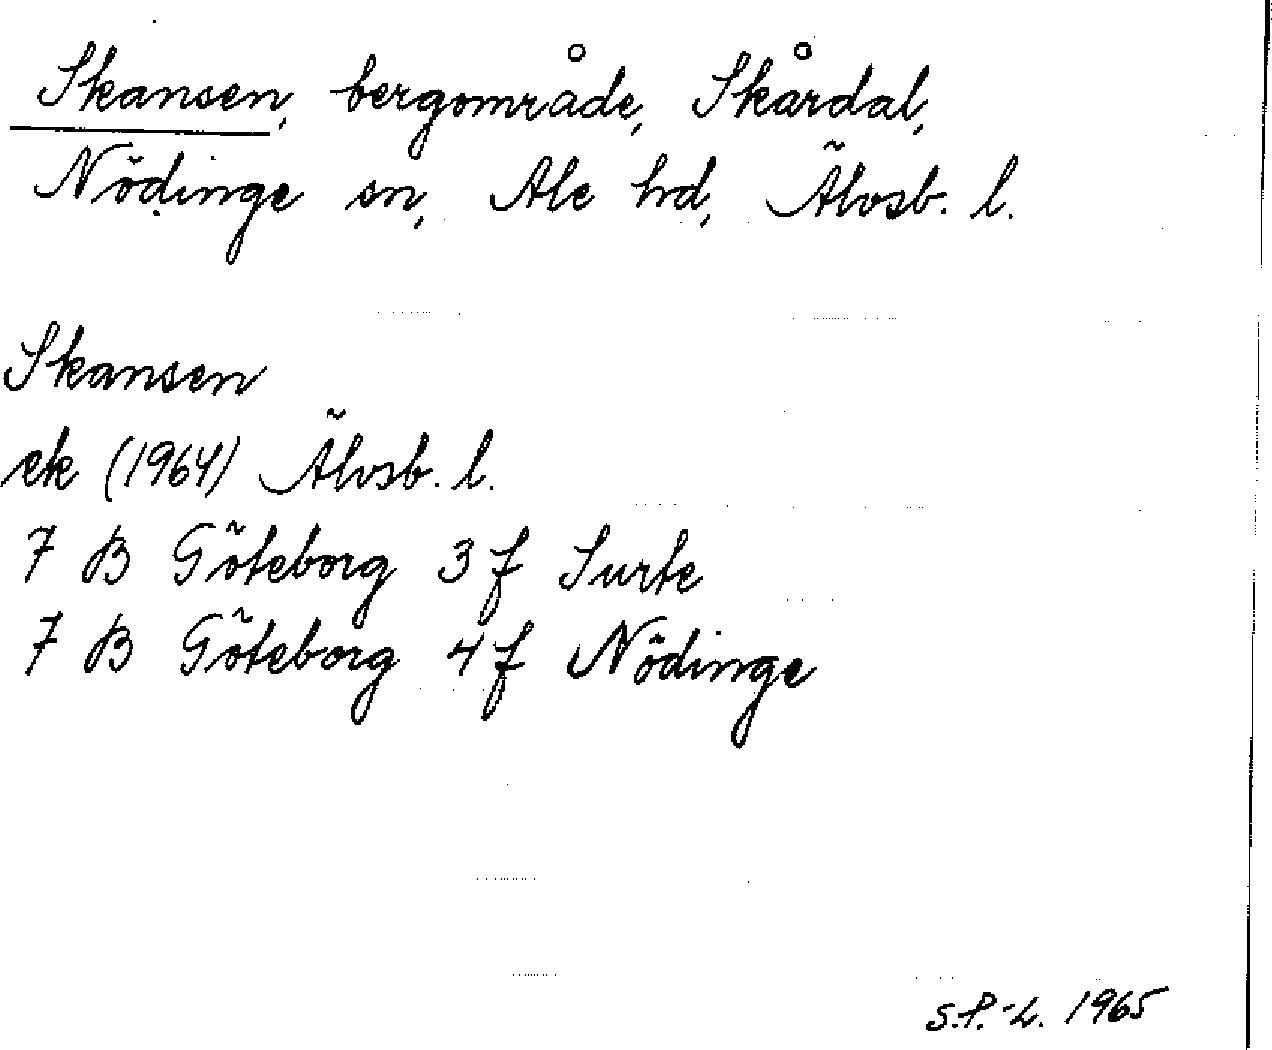 Skansen, bergområde, Skårdal,
Nödinge sn, Ale hd, Älvsb. l.
Skansen
ek (1964) Älvsb. l.
7 B Göteborg 3f Surte
7 B Göteborg 4f Nödinge
S.P.-L. 1965